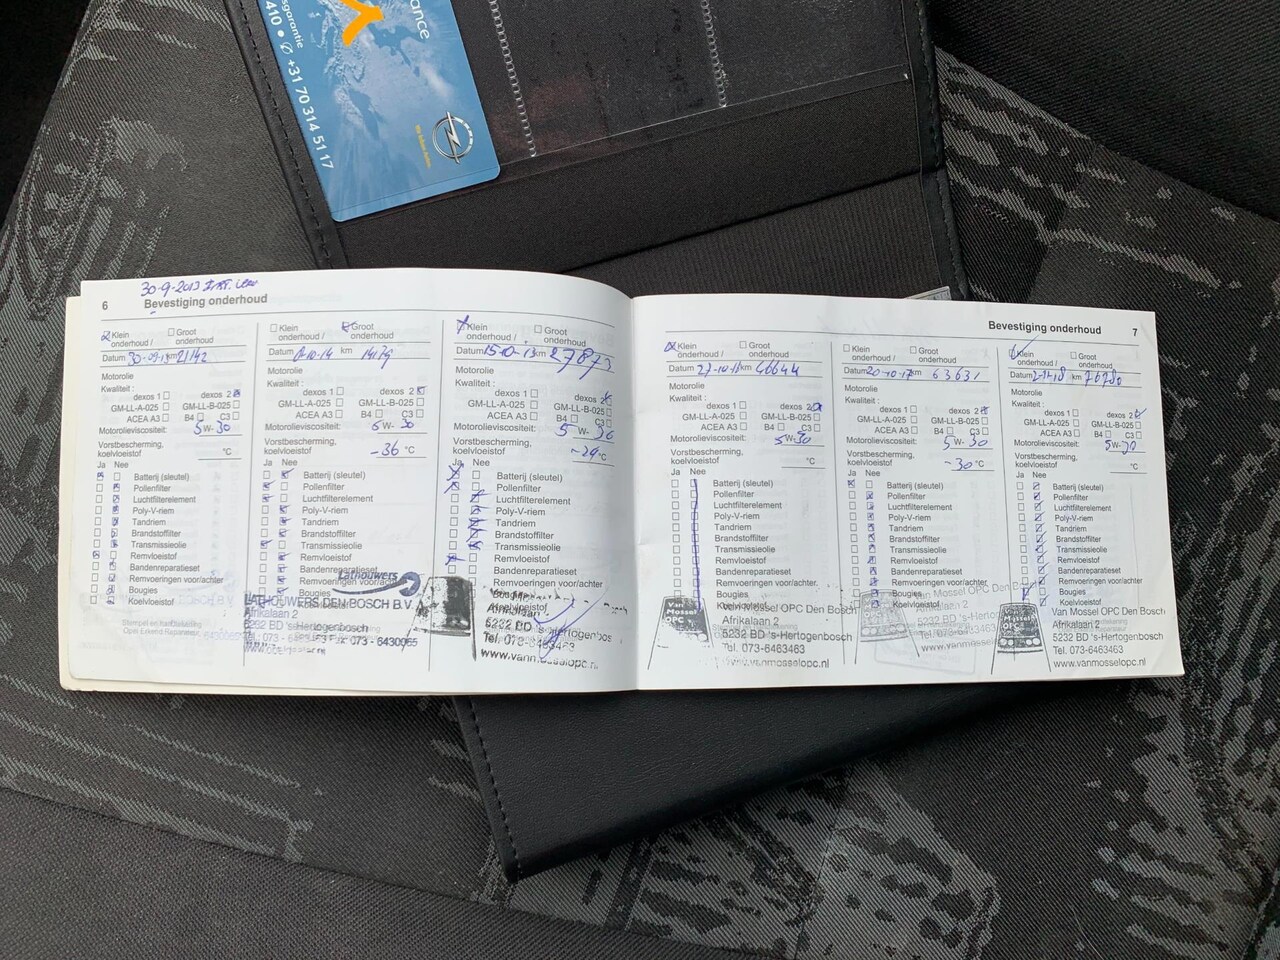 ance
sgarantie
410 • ✆ +31 70 314 51 17
6
30-9-2013
Bevestiging onderhoud
Klein
onderhoud /
Groot
onderhoud
Datum km 21142
Motorolie
Kwaliteit :
dexos 1
dexos 2
GM-LL-A-025
GM-LL-B-025
ACEA A3
B4
C3
Motorolieviscositeit:
5W-30
Vorstbescherming,
koelvloeistof
°C
Ja Nee
Batterij (sleutel)
Pollenfilter
Luchtfilterelement
Poly-V-riem
Tandriem
Brandstoffilter
Transmissieolie
Remvloeistof
Bandenreparatieset
Remvoeringen voor/achter
Bougies
Koelvloeistof
Stempel en handtekening
Opel Erkend Reparateur
Klein
onderhoud /
Groot
onderhoud
Datum km
Motorolie
Kwaliteit :
dexos 1
dexos 2
GM-LL-A-025
GM-LL-B-025
ACEA A3
B4
C3
Motorolieviscositeit:
5W-30
Vorstbescherming,
koelvloeistof
-36 °C
Ja Nee
Batterij (sleutel)
Pollenfilter
Luchtfilterelement
Poly-V-riem
Tandriem
Brandstoffilter
Transmissieolie
Remvloeistof
Bandenreparatieset
Remvoeringen voor/achter
Bougies
Lathouwers
LATHOUWERS DEN BOSCH B.V.
Afrikalaan 2
5232 BD 's-Hertogenbosch
Fax 073 - 6430965
Klein
onderhoud /
Groot
onderhoud
Datum 15-10- km 27873
Motorolie
Kwaliteit :
dexos 1
dexos 2
GM-LL-A-025
GM-LL-B-025
ACEA A3
B4
C3
Motorolieviscositeit:
5W-30
Vorstbescherming,
koelvloeistof
-29 °C
Ja Nee
Batterij (sleutel)
Pollenfilter
Luchtfilterelement
Poly-V-riem
Tandriem
Brandstoffilter
Transmissieolie
Remvloeistof
Bandenreparatieset
Remvoeringen voor/achter
Bougies
Koelvloeistof
Afrikalaan
5232 BD 's-Hertogenbos
Tel. 073-6463463
www.vanmosselopc.nl
Bevestiging onderhoud
7
Klein
onderhoud /
Groot
onderhoud
Datum km 46644
Motorolie
Kwaliteit :
dexos 1
dexos 2
GM-LL-A-025
GM-LL-B-025
ACEA A3
B4
C3
Motorolieviscositeit:
5W-30
Vorstbescherming,
koelvloeistof
°C
Ja Nee
Batterij (sleutel)
Pollenfilter
Luchtfilterelement
Poly-V-riem
Tandriem
Brandstoffilter
Transmissieolie
Remvloeistof
Bandenreparatieset
Remvoeringen voor/achter.
Bougies
Koelvloeistof
Van Mossel OPC
Van Mossel OPC Den Bosch
Afrikalaan 2
5232 BD 's-Hertogenbosch
Tel. 073-6463463
www.vanmosselopc.nl
Klein
onderhoud /
Groot
onderhoud
Datum 20-10-17 km 63631
Motorolie
Kwaliteit :
dexos 1
dexos 2
GM-LL-A-025
GM-LL-B-025
ACEA A3
B4
C3
Motorolieviscositeit:
5W-30
Vorstbescherming,
koelvloeistof
-30 °C
Ja Nee
Batterij (sleutel)
Pollenfilter
Luchtfilterelement
Poly-V-riem
Tandriem
Brandstoffilter
Transmissieolie
Remvloeistof
Bandenreparatieset
Remvoeringen voor/achter
Bougies
Koelvloeistof
Van Mossel OPC Den Bosch
Afrikalaan 2
5232 BD 's-Hertogenbosch
Tel. 073-6463463
www.vanmosselopc.nl
Klein
onderhoud /
Groot
onderhoud
Datum km 76780
Motorolie
Kwaliteit :
dexos 1
dexos 2
GM-LL-A-025
GM-LL-B-025
ACEA A3
B4
C3
Motorolieviscositeit:
5W-30
Vorstbescherming,
koelvloeistof
°C
Ja Nee
Batterij (sleutel)
Pollenfilter
Luchtfilterelement
Poly-V-riem
Tandriem
Brandstoffilter
Transmissieolie
Remvloeistof
Bandenreparatieset
Remvoeringen voor/achter
Bougies
Koelvloeistof
Van Mossel OPC
Van Mossel OPC Den Bosch
Afrikalaan 2
5232 BD 's-Hertogenbosch
Tel. 073-6463463
www.vanmosselopc.nl